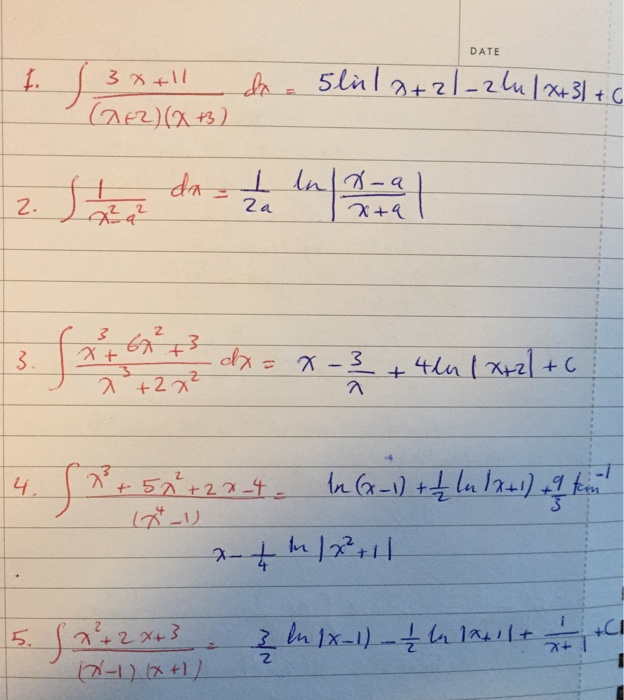 DATE
1. ∫ (3x+11)/((x+2)(x+3)) dx = 5 lin|x+2| - 2 ln|x+3| + C
2. ∫ 1/(x²-a²) dx = 1/(2a) ln|(x-a)/(x+a)|
3. ∫ (x³+6x²+3)/(x³+2x²) dx = x - 3/x + 4 ln|x+2| + C
4. ∫ (x³+5x²+2x-4)/(x⁴-1) = ln(x-1) + 1/2 ln|x+1) + 9/3 tan⁻¹
x - 1/4 ln|x²+1|
5. ∫ (x²+2x+3)/((x-1)(x+1)) = 3/2 ln|x-1) - 1/2 ln|x+1| + 1/(x+1) + C